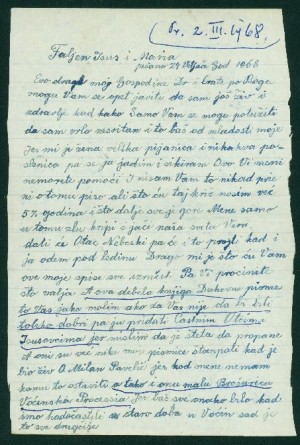 Pr. 2. III. 1968.
Faljen Isus i Marija
pisano 29 Veljače God 1968
Evo dragi moj Gospodine Dr i brate po Bogu
mogu Vam se opet javiti da sam još živ i
zdravlje kad kako Samo Vam se mogu potužiti
da sam vrlo nesretan i to baš od mladosti moje
Jer mi je žena velika pijanica i nikakva po
pa se ja jadim i sikiram Ovo Vi meni
nemorete pomoći I nisam Vam to nikad prije
ni o tomu pisao ali što ću taj križ nosim već
57 godina i što dalje sve je gore Mene samo
u tomu zlu krijepi sjaće naša sveta Vera
dati će Otac Nebeski pa će i to proći kad i
ja odem pod ledinu Drago mi je što ću Vam
ove moje spise sve uručiti Pa Vi procinite
što valja A ova debela knjiga Duhovne pisme
to Vas jako molim ako da Vas nije da bi bili
toliko dobri pa ju pridati Častnim Otcima
Isusovcima jer mislim da je šteta da propane
A oni su već neke moje pjesmice štampali kad je
bio živ O. Milan Pavelić Jer kod mene nemam
kamu to ostaviti a tako i onu malu Brošuricu
Voćinska Procesija Jer baš sve onako bilo kad
smo hodočastili u staro doba u Voćin sad je
to sve drugčije